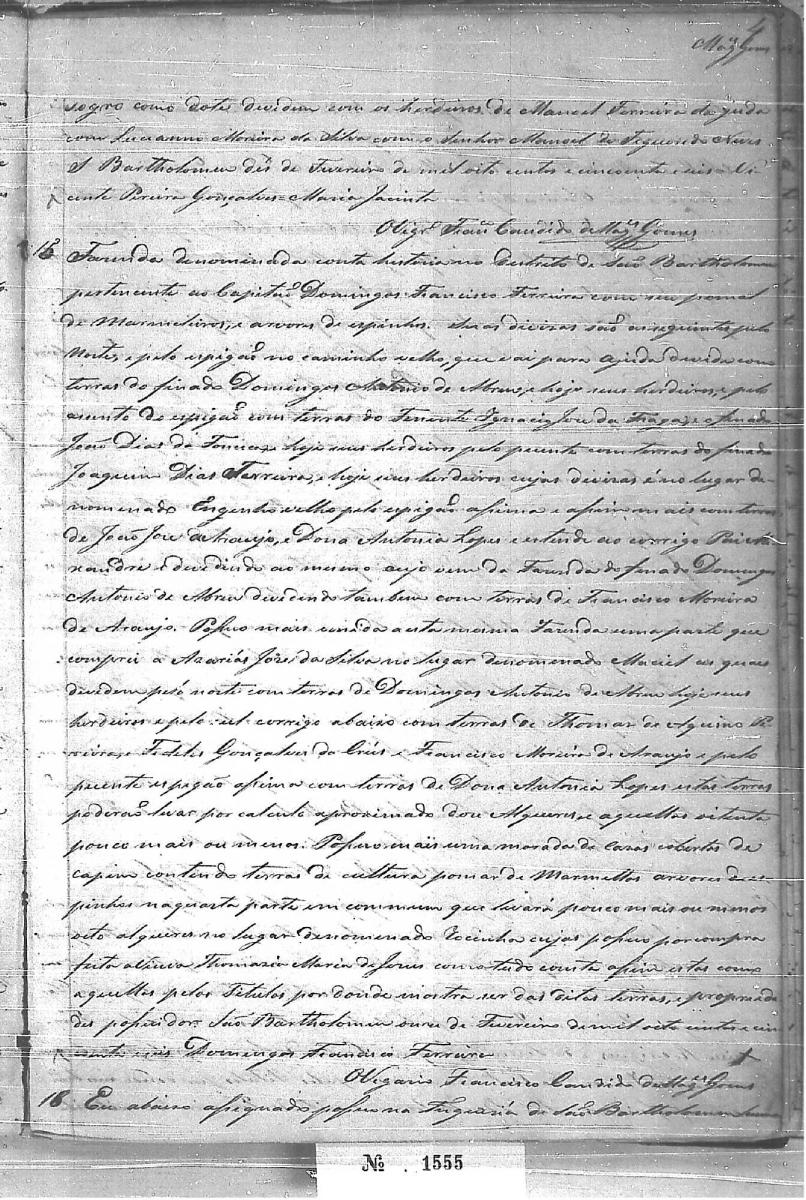 4
Mag.es Gomes
sogro como dote devidem com os herdeiros de Manoel Ferreira da
com Lucianno Moreira da Silva com o Senhor Manoel de Figueredo Neves
S Bartholomeu dés de Fevereiro de mil oito centos e cincoenta e seis Vi
cente Pereira Gonçalves = Maria Jacinta
O Vigr.o Fran.co Candido de Mag.es Gomes
15 Fazenda denominada conta historia no Destrito de São Bartholomeu
pertencente ao Capitaõ Domingos Francisco Ferreira com seu pomal
de Marmeleiros, e arvores de espinhos. Suas divizas saõ as seguintes pelo
Norte, e pelo espigaõ no caminho velho, que vai para ajuda devida com
terras do finado Domingos Antonio de Abreu, e hoje seus herdeiros, e pelo
asento de espigaõ com terras do Tenente Ignacio Jose da Fraga, e o finado
Joaõ Dias da Fonseca, e hoje seus herdeiros pelo poente com terras do finado
Joaquim Dias Ferreira, e hoje seus herdeiros cujas divizas é no lugar de
nomenado Engenho velho pelo espigaõ asima e asim mais com terras
de Joaõ Jose de Araujo, e Dona Antonia Lopes e estende ao corrigo Pai Ale
xandre e devedindo ao mesmo cujo vem da Fazenda do finado Domingos
Antonio de Abreu devedindo tambem com terras de Francisco Moreira
de Araujo. Posuo mais unida a esta mesma Fazenda uma parte que
comprei a Azarias Joze da Silva no lugar denomenado Maciel as quaes
devedem pelo norte com terras de Domingos Antonio de Abreu hoje seus
herdeiros e pelo sul corrigo abaixo com terras de Thomaz de Aquino Pe
reira, e Fideles Gonçalves da Crús e Francisco Moreira de Araujo e pelo
poente espigaõ asima com terras de Dona Antonia Lopes estas terras
poderaõ levar por calculo aproximado dou Alqueires e aquellas oitenta
pouco mais ou menos. Posuo mais uma morada de cazas cobertas de
capim contendo terras de cultura pomar de Marmellos arvores de es
pinhos na quarta parte em commum que levará pouco mais ou menos
oito alqueires no lugar denomenado Rocinha cujas posuo por compra
feita a Viuva Thomazia Maria de Jesus como tudo consta asim estas como
aquellas pelos Titulos por donde mostra ser das ditas terras, e propriada
des posuidor. Saõ Bartholomeu onze de Fevereiro de mil oito centos e cinco
enta e seis Domingos Francisco Ferreira
O Vigario Francisco Candido de Mag.es Gomes
16 Eu abaixo asignado posuo na Freguezia de Saõ Bartholomeu
Nº 1555